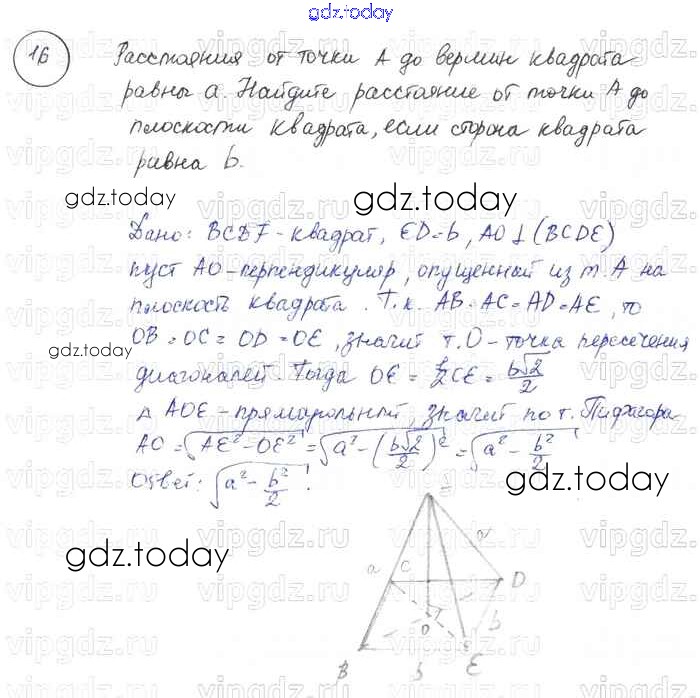 gdz.today
16
Расстояния от точки А до вершин квадрата
равны a. Найдите расстояние от точки А до
плоскости квадрата, если сторона квадрата
равна b.
gdz.today
gdz.today
Дано: BCDF - квадрат, ED=b, AO⊥(BCDE)
пуст AO-перпендикуляр, опущенный из т. А на
плоскость квадрата. Т.к. AB=AC=AD=AE, то
OB=OC=OD=OE, значит т.О-точка пересечения
gdz.today
диагоналей. Тогда OE = 1/2 CE = b√2/2
△ AOE-прямоугольный, значит по т. Пифагора
AO = √(AE²-OE²) = √(a²-(b√2/2)²) = √(a²-b²/2)
Ответ: √(a²-b²/2)!
gdz.today
gdz.today
a
a
C
D
O
b
B
b
E
vipgdz.ru